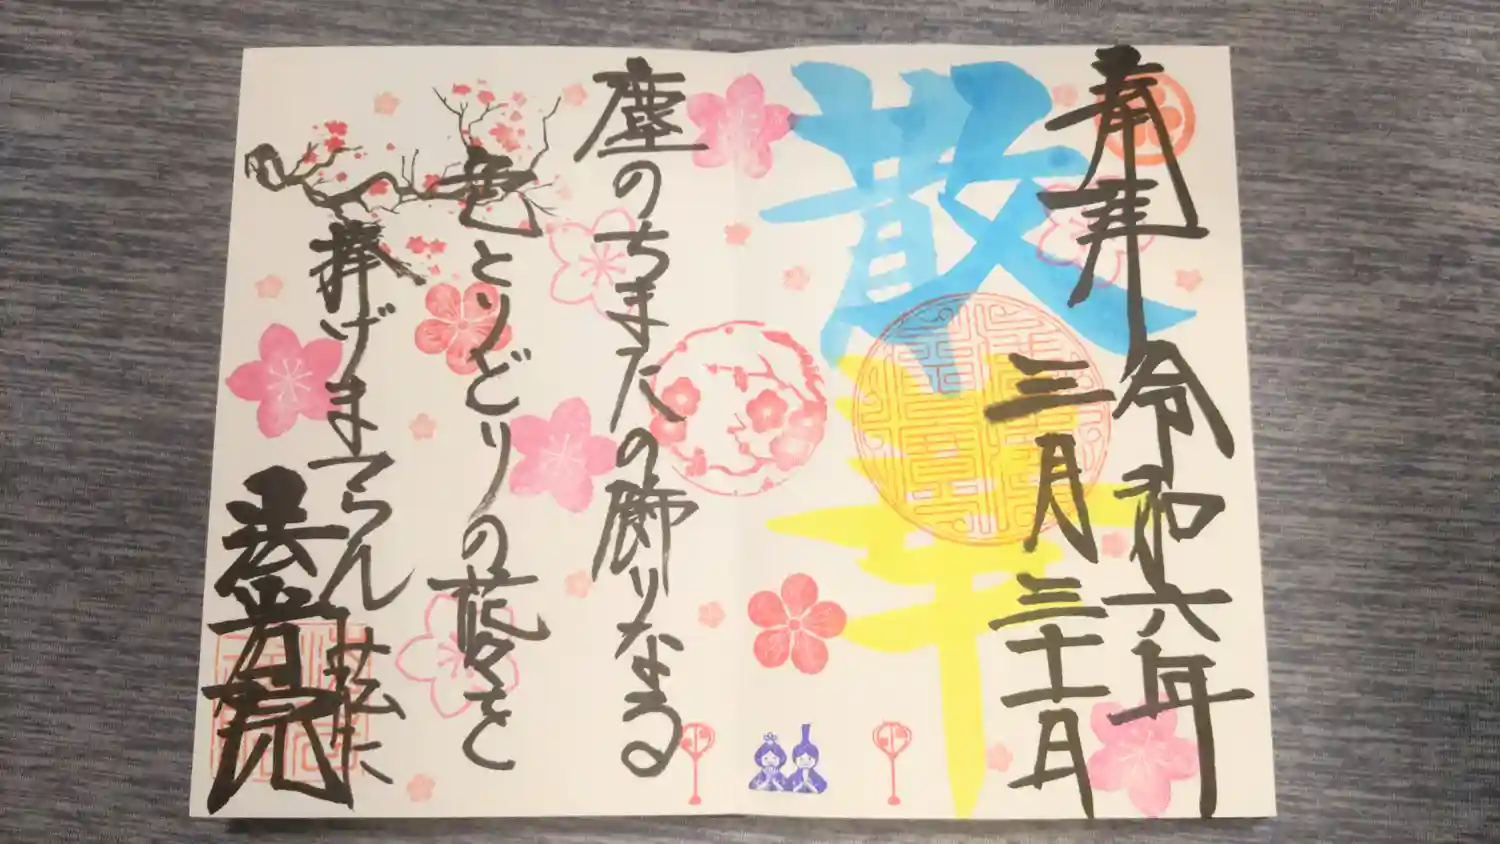 奉拝 令和六年
三月三十一日
散華
塵のちまたの飾りなる
色とりどりの花々を
捧げまつらん 茲に